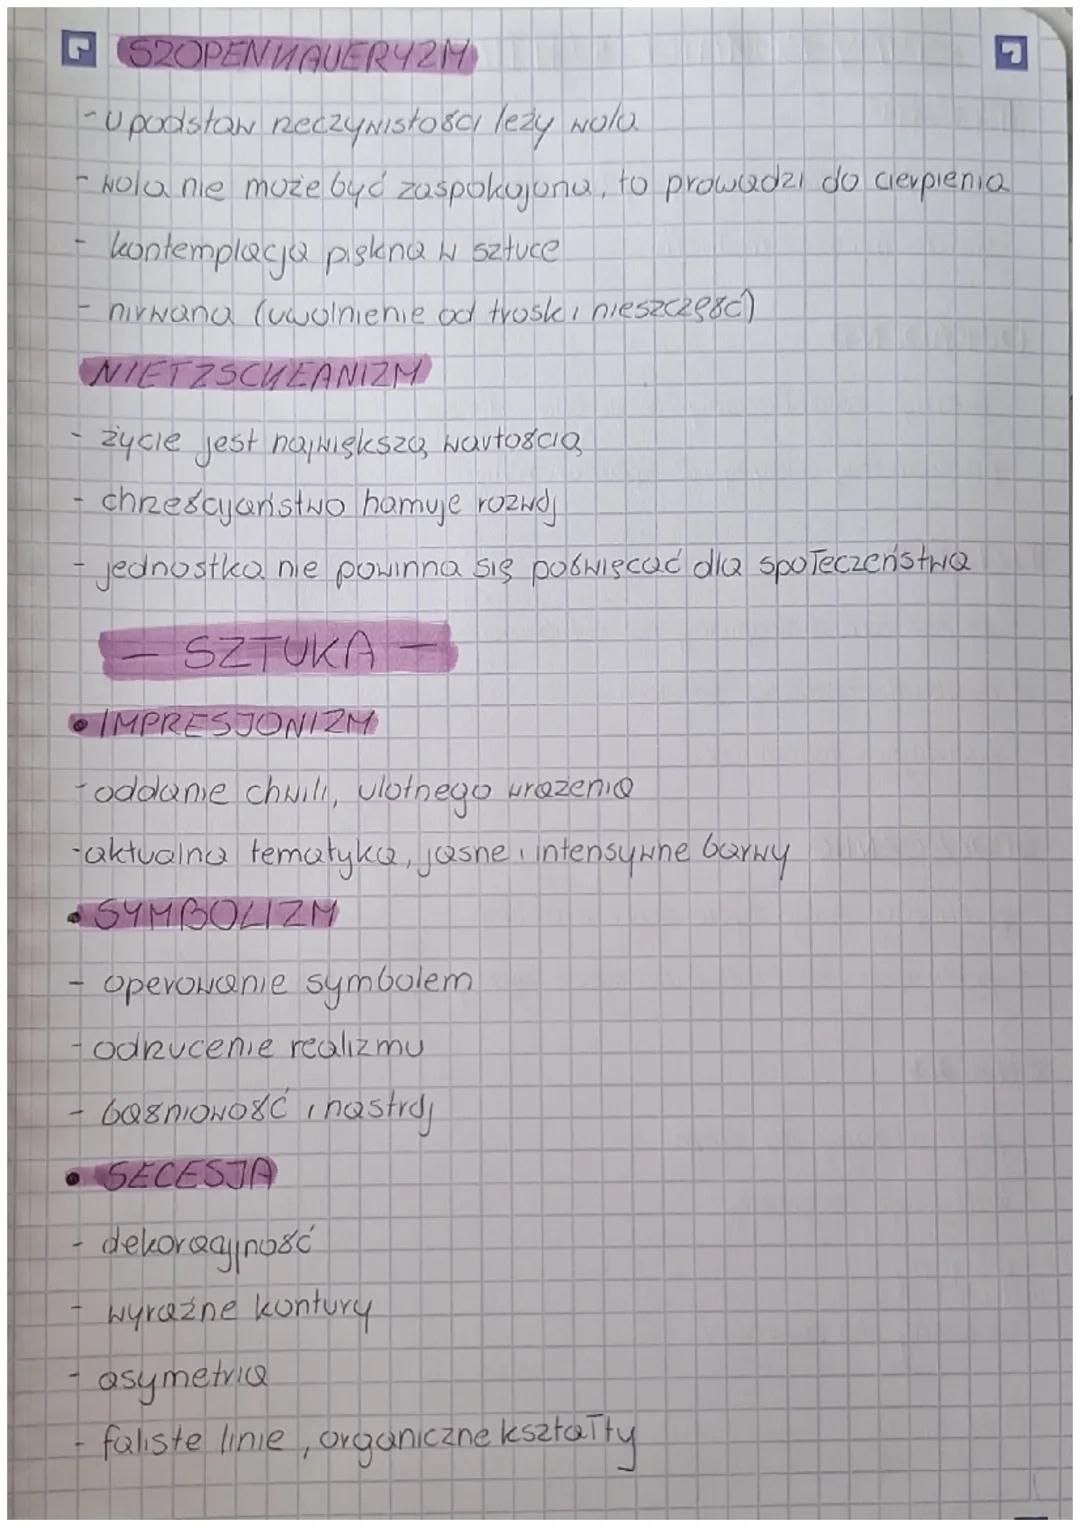 SZOPENHAUERYZM
- u podstaw rzeczywistości leży wola
- wola nie może być zaspokojona, to prowadzi do cierpienia
- kontemplacja piękna w sztuce
- nirwana (uwolnienie od trosk i nieszczęść)
NIETZSCHEANIZM
- życie jest największą wartością
- chrześcijaństwo hamuje rozwój
- jednostka nie powinna się poświęcać dla społeczeństwa
- SZTUKA -
• IMPRESJONIZM
- oddanie chwili, ulotnego wrażenia
- aktualna tematyka, jasne i intensywne barwy
• SYMBOLIZM
- operowanie symbolem
- odrzucenie realizmu
- baśniowość i nastrój
• SECESJA
- dekoracyjność
- wyraźne kontury
- asymetria
- faliste linie, organiczne kształty